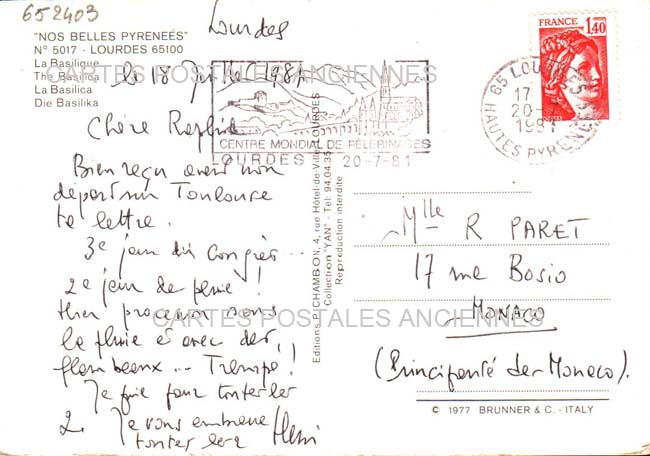 652403
"NOS BELLES PYRENEÉS"
N° 5017 - LOURDES 65100
La Basilique
The Basilica
La Basilica
Die Basilika
Lourdes
le 18 Juillet 1981
CARTES POSTALES ANCIENNES
Chère
Bien reçu avant mon
départ sur Toulouse
ta lettre.
3e jour du Congrès...
2e jour de pluie !
Hier procession sous
la pluie et avec des
flambeaux... Trempé !
Je prie pour toutes les
2. Je vous embrasse
toutes les 2 Henri
CENTRE MONDIAL DE PÈLERINAGES
LOURDES 20-7-81
Editions P. CHAMBON, 4, rue Hôtel-de-Ville, LOURDES
Collection "YAN" - Tél: 94.04.35
Reproduction interdite
FRANCE
1,40
65 LOURDES
17
20-7
1981
HAUTES PYRENEES
Mlle R PARET
17 rue Bosio
MONACO
(Principauté de Monaco).
CARTES POSTALES ANCIENNES
© 1977 BRUNNER & C. - ITALY